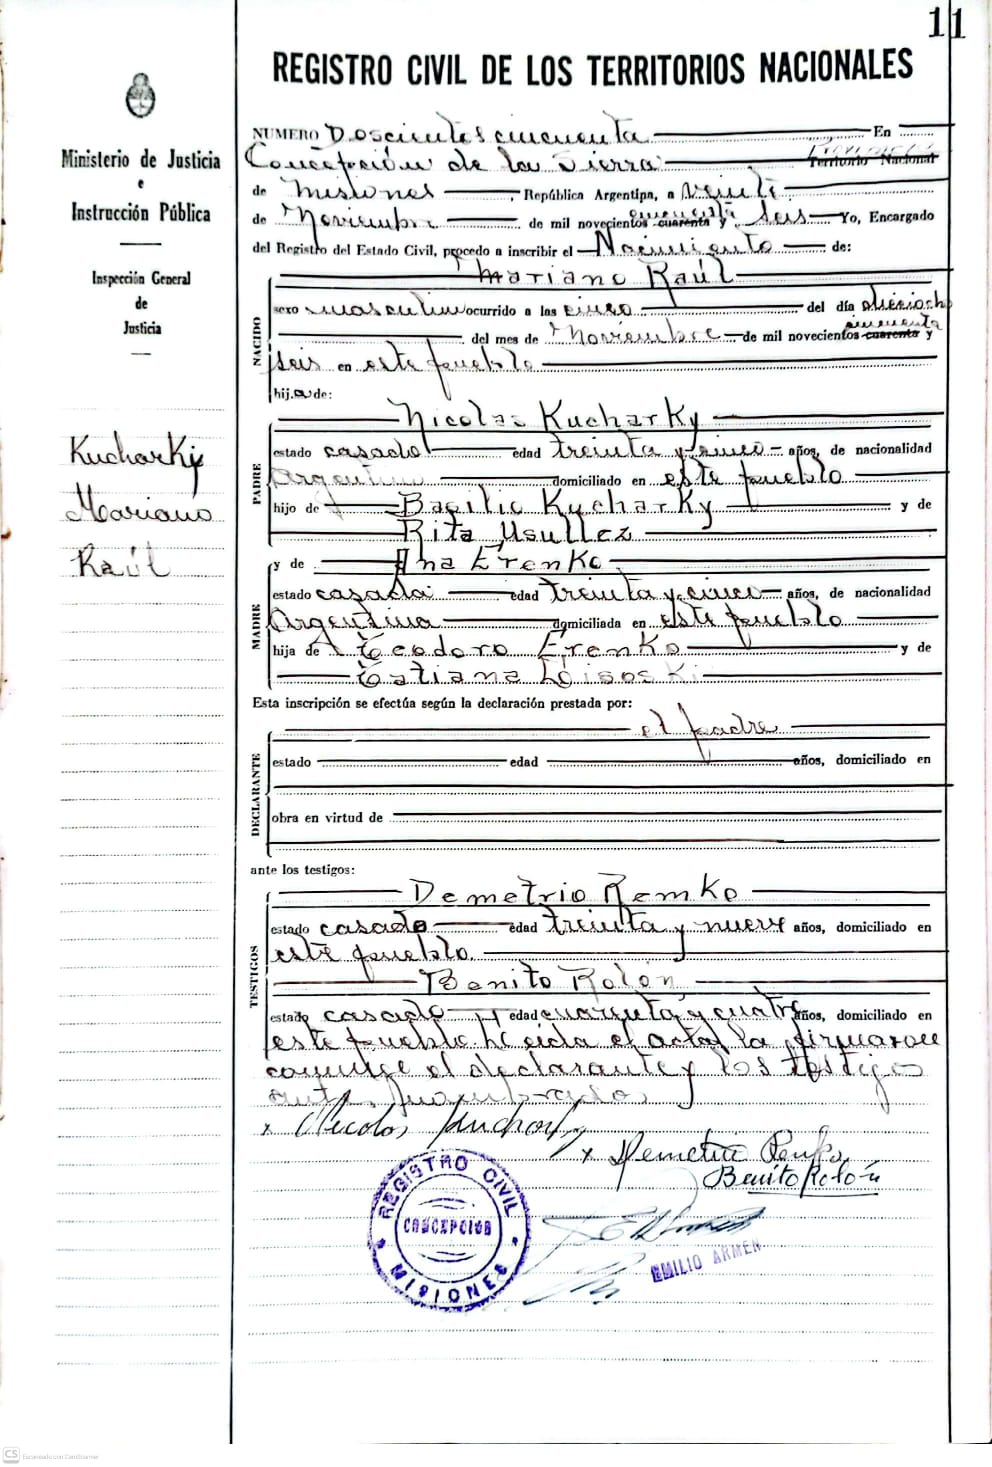 11
REGISTRO CIVIL DE LOS TERRITORIOS NACIONALES
Ministerio de Justicia
e
Instrucción Pública
Inspección General
de
Justicia
Kucharky
Mariano
Raúl
NUMERO Doscientos cincuenta En
Concepción de la Sierra Provincia Territorio Nacional
de Misiones, República Argentina, a veinte
de Noviembre de mil novecientos cincuenta cuarenta y seis Yo, Encargado
del Registro del Estado Civil, procedo a inscribir el Nacimiento de:
NACIDO
Mariano Raúl
sexo masculino ocurrido a las cinco del día dieciocho
del mes de Noviembre de mil novecientos cincuenta cuarenta y
seis en este pueblo
hijo de:
PADRE
Nicolas Kucharky
estado casado edad treinta y cinco años, de nacionalidad
Argentino domiciliado en este pueblo
hijo de Basilio Kucharky y de
Rita Usullez
MADRE
y de Ana Erenko
estado casada edad treinta y cinco años, de nacionalidad
Argentina domiciliada en este pueblo
hija de Teodoro Erenko y de
Tatiana
Esta inscripción se efectúa según la declaración prestada por:
DECLARANTE
el padre
estado edad años, domiciliado en
obra en virtud de
ante los testigos:
TESTIGOS
Demetrio Remko
estado casado edad treinta y nueve años, domiciliado en
este pueblo
Benito Rolón
estado casado edad cuarenta y cuatro años, domiciliado en
este pueblo leída el acta la firmaron
conmigo el declarante y los testigos
x Nicolas Kucharky
x Demetrio
Benito Rolón
REGISTRO CIVIL
CONCEPCION
MISIONES
EMILIO ARMEN
CS Escaneado con CamScanner